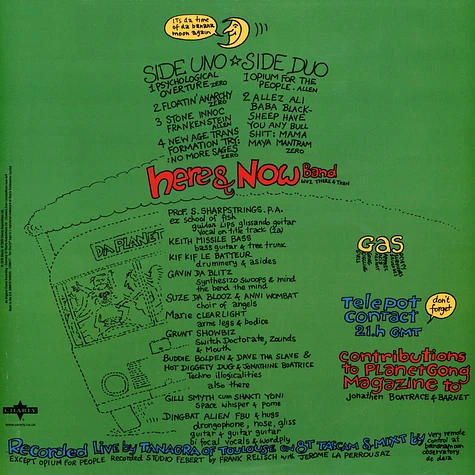 iT's da time
of da banana
moon again
SIDE UNO ☆ SIDE DUO
1 PSYCHOLOGICAL
OVERTURE ZERO
2 FLOATIN' ANARCHY
ZERO
3 STONE INNOC
FRANKENSTEIN
ALLEN
4 NEW AGE TRANS
FORMATION TRY:
NO MORE SAGES
ZERO
1 OPIUM FOR THE
PEOPLE. ALLEN
2 ALLEZ ALI
BABA BLACK-
SHEEP HAVE
YOU ANY BULL
SHIT: MAMA
MAYA MANTRAM
ZERO
here & NOW Band
LIVE THERE & THEN
PROF. S. SHARPSTRINGS. P.A.
ex school of fish
guidon LIPS glissando guitar
vocal on title track (2a)
KEITH MISSILE BASS
bass guitar & tree trunk
KIF KIF LE BATTEUR
drummery & asides
GAVIN DA BLITZ
synthesizo swoops & mind
the bend the mind
SUZE DA BLOOZ & ANNI WOMBAT
choir of angels
Marie CLEARLIGHT
arms legs & bodice
GRUNT SHOWBIZ
Switch Doctorate, Zounds
& Mouth
BUDDIE BOLDEN & DAVE THA SLAVE &
HOT DIGGETY DUG & JONATHINE BOATRICE
Techno illogicalities
also there
GILLI SMYTH cum SHAKTI YONI
Space whisper & pome
DINGBAT ALIEN FBU & hugs
alorngophone, nose, gliss
guitar & guitar guitar
bi focal vocals & wordply
DA PLANET
GAS
TELEPOT
CONTACT
21.h GMT
don't
forget
contributions
to PLANETGONG
MAGAZINE to
Jonathen BOATRACE & BARNET
CHARLY
www.charly.co.uk
Recorded Live by TANAORA OF TOULOUSE on 8T TASCAM & MIXT by
very remote
control at
bananamoon
observatory
de deia
EXCEPT OPIUM FOR PEOPLE Recorded STUDIO FEBERT by FRANK RELISCH with JEROME LA PERROUSAZ